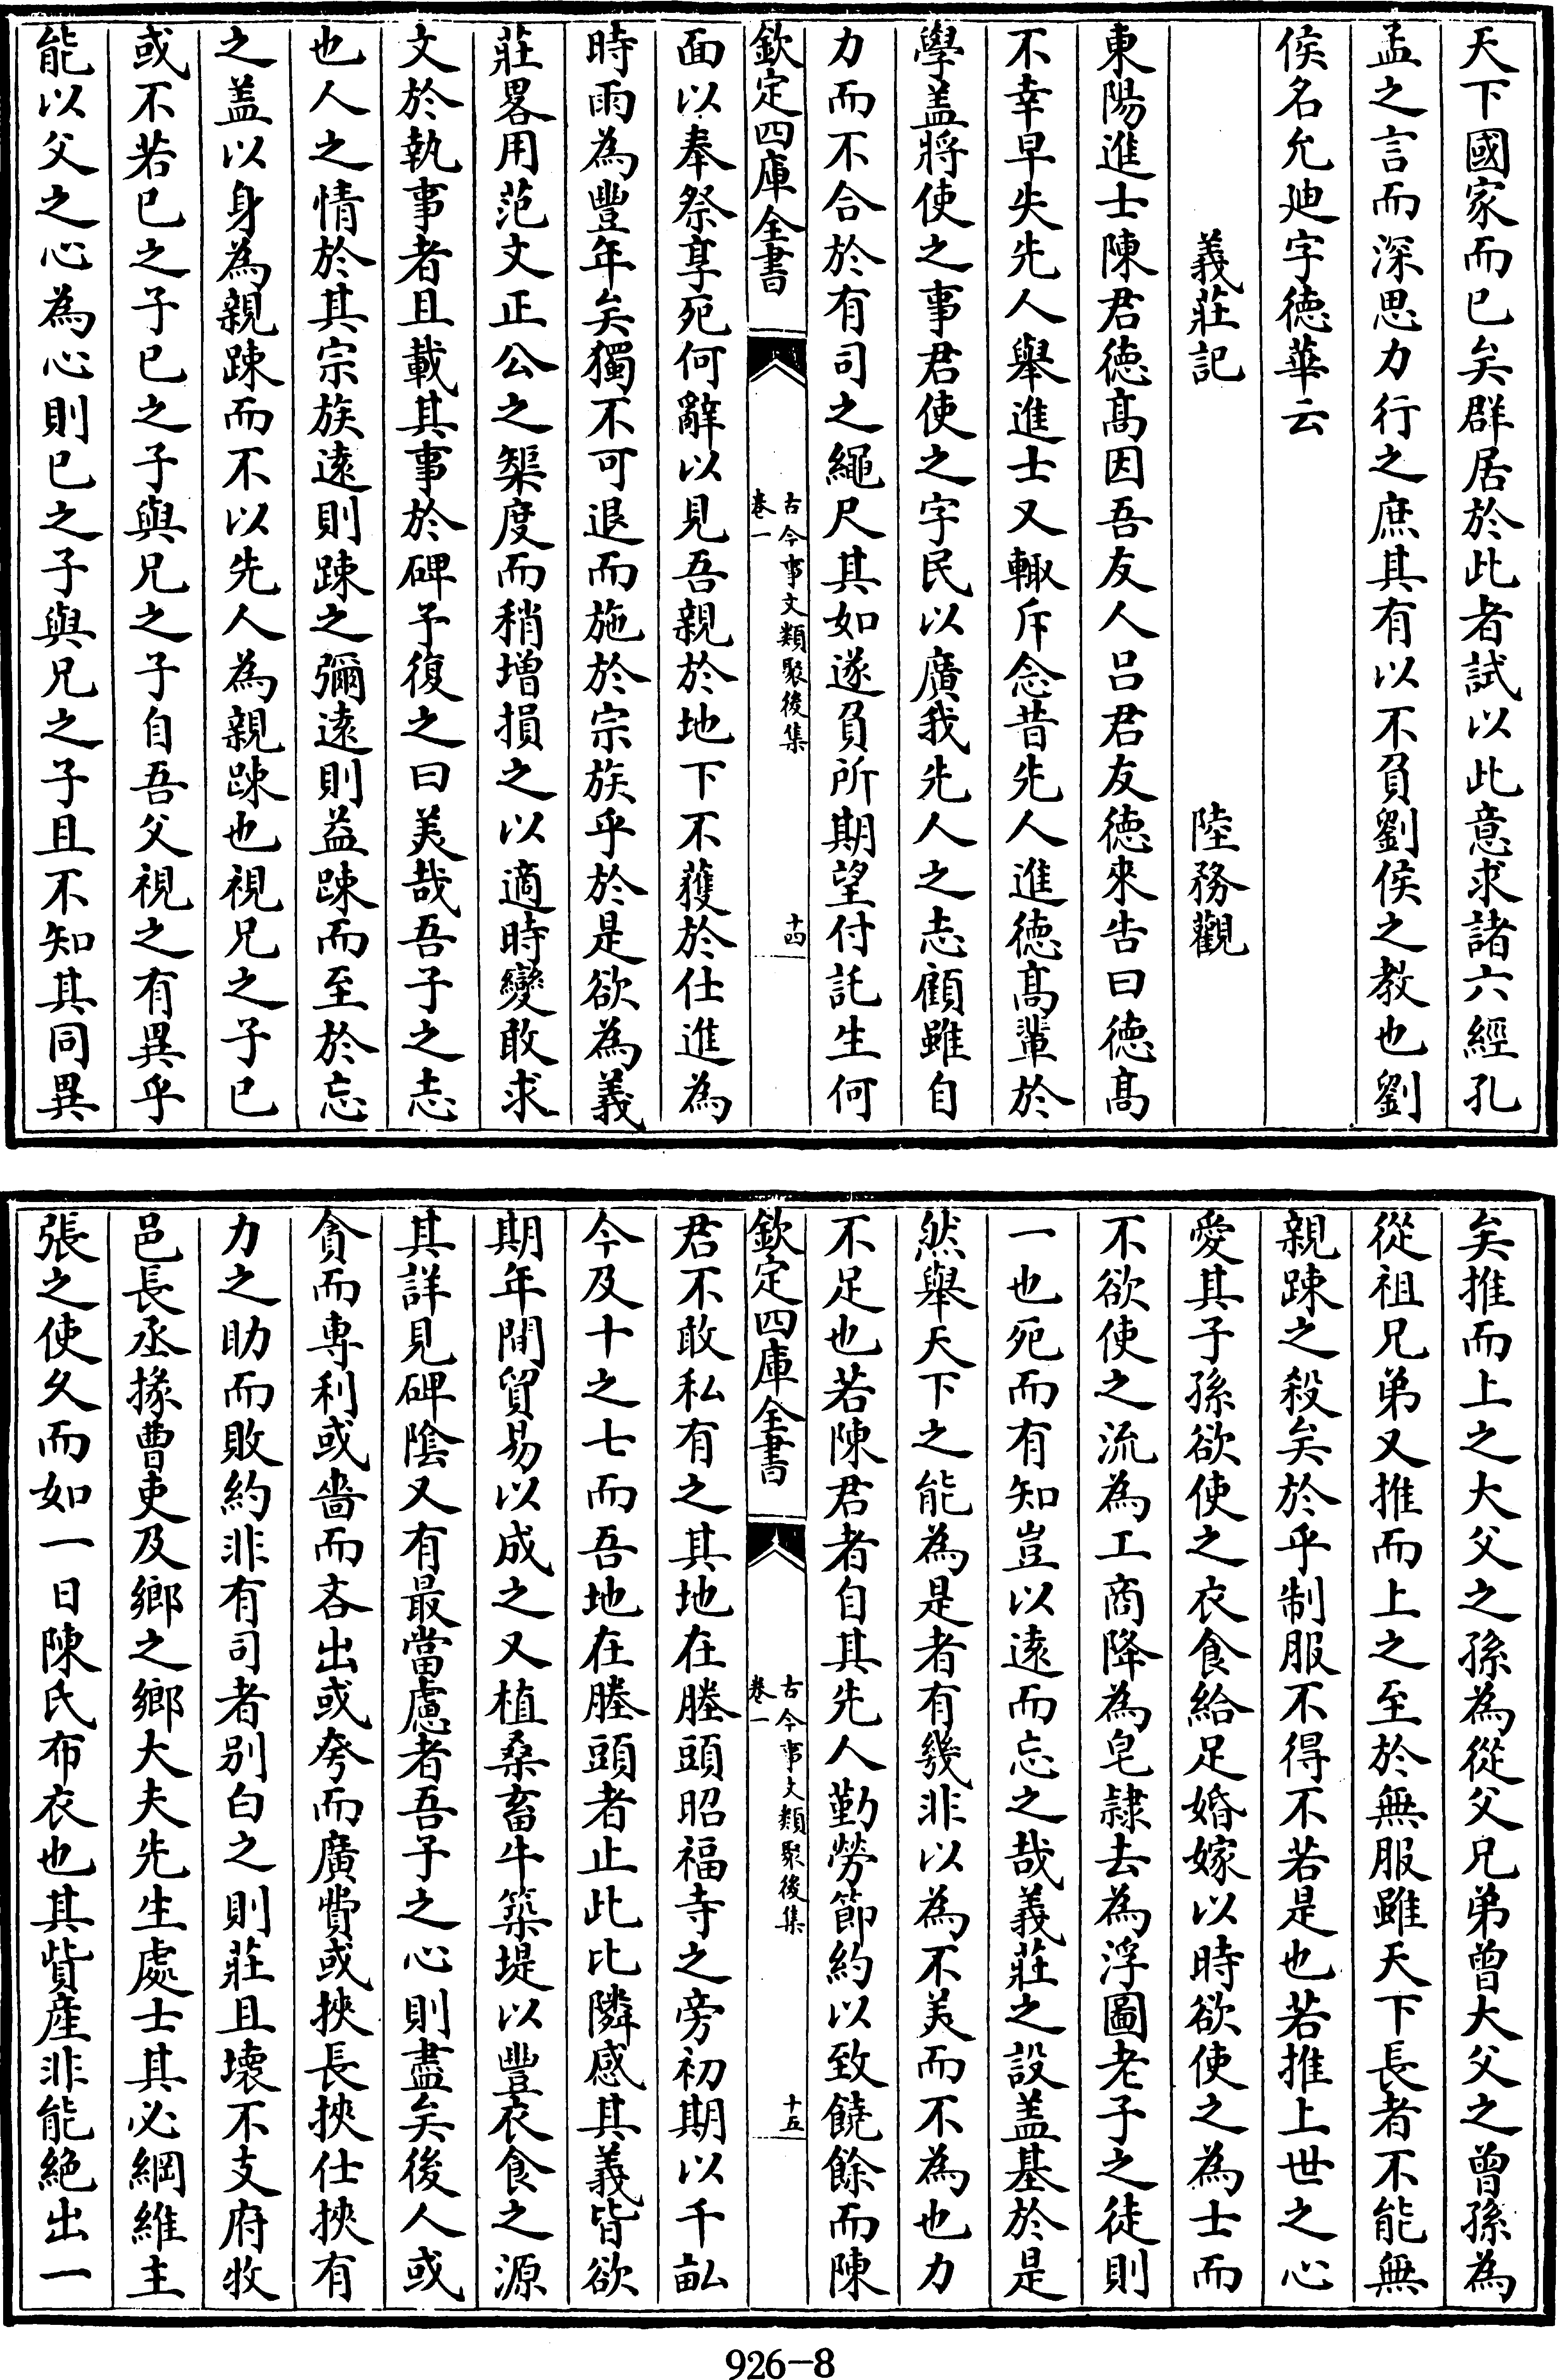 天下國家而已矣群居於此者試以此意求諸六經孔
孟之言而深思力行之庶其有以不負劉侯之教也劉
侯名允迪字德華云
義莊記　陸務觀
東陽進士陳君德髙因吾友人吕君友德來告曰德髙
不幸早失先人舉進士又輙斥念昔先人進德髙輩於
學盖將使之事君使之字民以廣我先人之志顧雖自
力而不合於有司之繩尺其如遂負所期望付託生何
欽定四庫全書　古今事文類聚後集　卷一　十四
面以奉祭享死何辭以見吾親於地下不獲於仕進為
時雨為豐年矣獨不可退而施於宗族乎於是欲為義
莊畧用范文正公之榘度而稍增損之以適時變敢求
文於執事者且載其事於碑予復之曰美哉吾子之志
也人之情於其宗族遠則踈之彌遠則益踈而至於忘
之盖以身為親踈而不以先人為親踈也視兄之子已
或不若已之子已之子與兄之子自吾父視之有異乎
能以父之心為心則已之子與兄之子且不知其同異
矣推而上之大父之孫為從父兄弟曾大父之曾孫為
從祖兄弟又推而上之至於無服雖天下長者不能無
親踈之殺矣於乎制服不得不若是也若推上世之心
愛其子孫欲使之衣食給足婚嫁以時欲使之為士而
不欲使之流為工商降為皂隷去為浮圖老子之徒則
一也死而有知豈以遠而忘之哉義莊之設盖基於是
然舉天下之能為是者有幾非以為不美而不為也力
不足也若陳君者自其先人勤勞節約以致饒餘而陳
欽定四庫全書　古今事文類聚後集　卷一　十五
君不敢私有之其地在塍頭昭福寺之旁初期以千畝
今及十之七而吾地在塍頭者止此比隣感其義皆欲
期年間貿易以成之又植桑畜牛築堤以豐衣食之源
其詳見碑隂又有最當慮者吾子之心則盡矣後人或
貪而專利或嗇而吝出或夸而廣費或挾長挾仕挾有
力之助而敗約非有司者别白之則莊且壊不支府牧
邑長丞掾曹吏及鄉之鄉大夫先生處士其必綱維主
張之使久而如一日陳氏布衣也其貲産非能絶出一
926-8